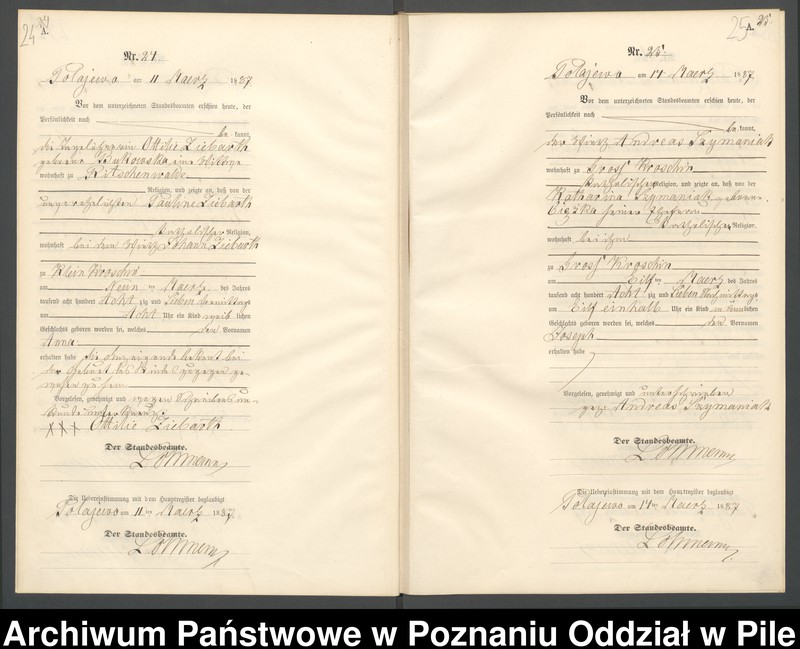 24
A.
Nr. 24.
Polajewo am 11 Maerz 1887
Vor dem unterzeichneten Standesbeamten erschien heute, der
Persönlichkeit nach
be kannt,
die Ottilie Ziebarth
geborene
wohnhaft zu Ritschenwalde
Religion, und zeigte an, daß von der
unverehelichten Pauline Ziebarth
katholischer Religion,
wohnhaft bei dem Wirth Johann Ziebarth
zu Klein Kroschin
am Neun ten Maerz des Jahres
tausend acht hundert Acht zig und Sieben Vormittags
um Acht Uhr ein Kind weib lichen
Geschlechts geboren worden sei, welches den Vornamen
Anna
erhalten habe die Anzeigende bekannt bei
der Geburt des Kindes zugegen ge-
wesen zu sein
Vorgelesen, genehmigt und wegen Schreibens un-
kunde unterkreuzt
XXX Ottilie Ziebarth
Der Standesbeamte.
Die Uebereinstimmung mit dem Hauptregister beglaubigt
Polajewo am 11 ten Maerz 1887
Der Standesbeamte.
25
A.
25
Nr. 25.
Polajewo am 11 Maerz 1887
Vor dem unterzeichneten Standesbeamten erschien heute, der
Persönlichkeit nach
be kannt,
der Wirth Andreas Szymaniak
wohnhaft zu Gross Kroschin
katholischer Religion, und zeigte an, daß von der
Katharina Szymaniak geborene
seiner Ehefrau
katholischer Religion,
wohnhaft bei ihm
zu Gross Kroschin
am Elf ten Maerz des Jahres
tausend acht hundert Acht zig und Sieben Vormittags
um Elf einhalb Uhr ein Kind männlichen
Geschlechts geboren worden sei, welches den Vornamen
Joseph
erhalten habe
Vorgelesen, genehmigt und unterschrieben
gez. Andreas Szymaniak
Der Standesbeamte.
Die Uebereinstimmung mit dem Hauptregister beglaubigt
Polajewo am 11 ten Maerz 1887
Der Standesbeamte.
Archiwum Państwowe w Poznaniu Oddział w Pile